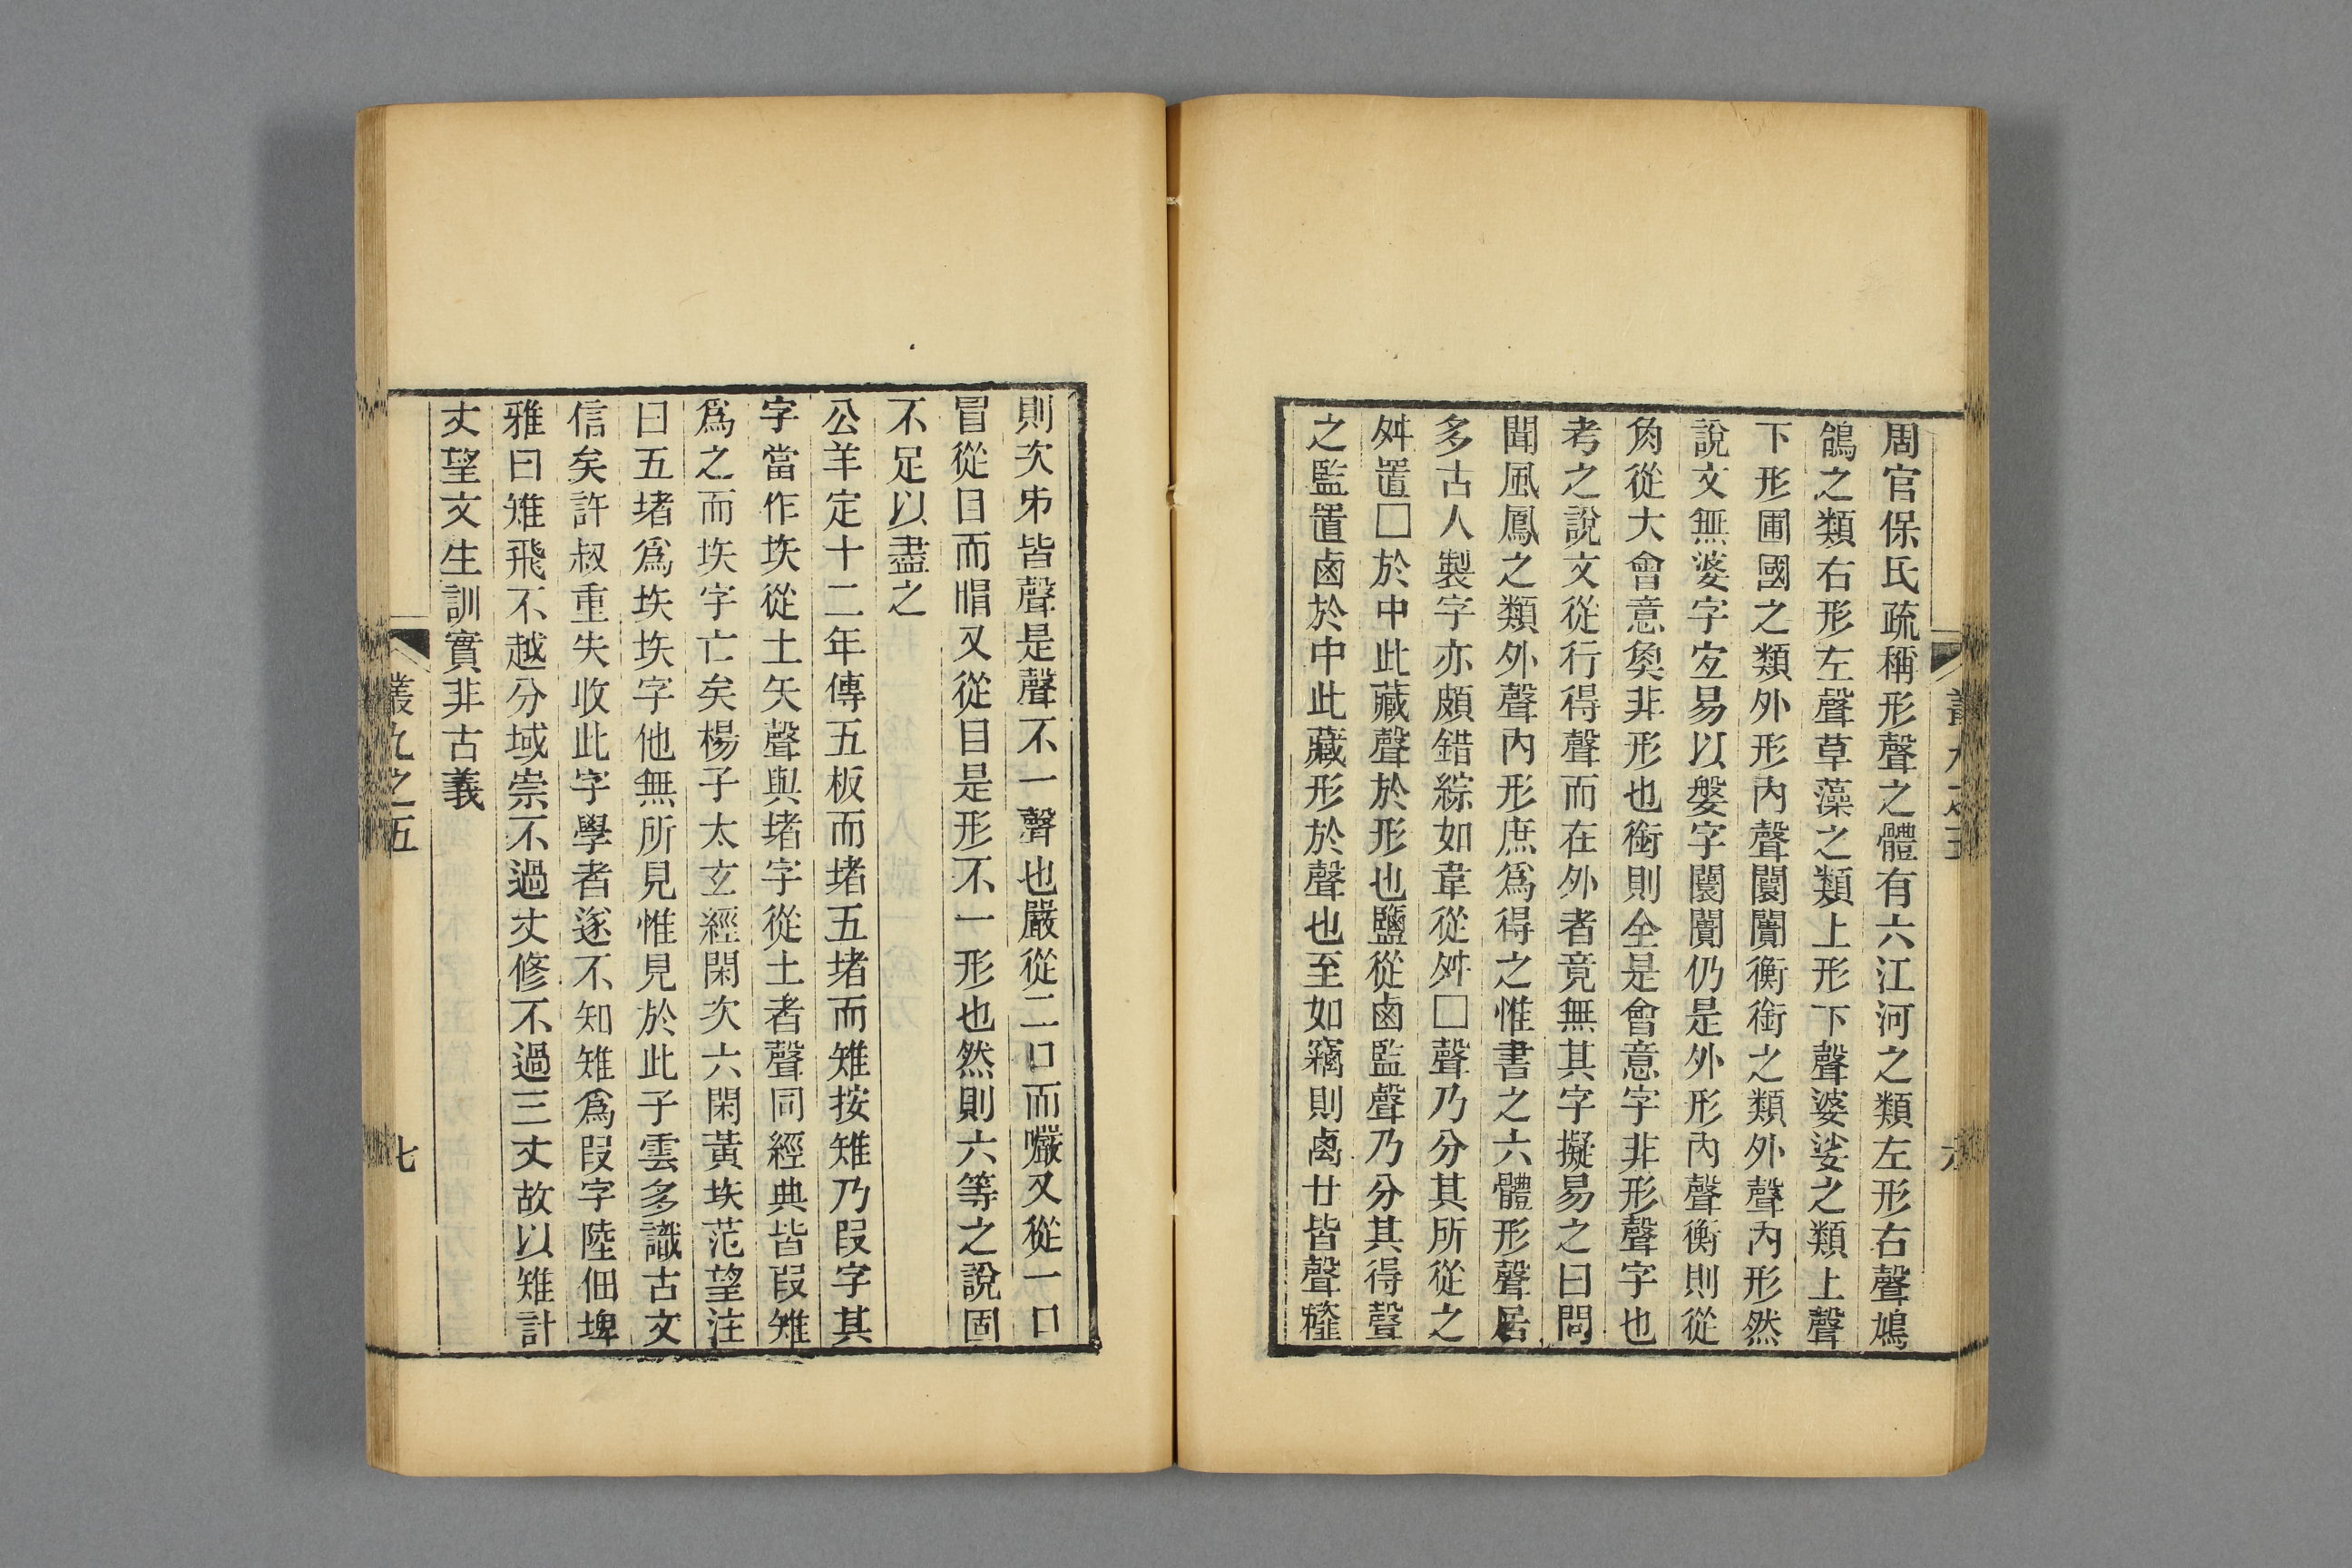 周官保氏疏稱形聲之體有六江河之類左形右聲鳩
鴿之類右形左聲草藻之類上形下聲婆娑之類上聲
下形圃國之類外形內聲闤闠衡銜之類外聲內形然
說文無婆字宐易以媻字闤闠仍是外形內聲衡則從
角從大會意奐非形也銜則全是會意字非形聲字也
考之說文從行得聲而在外者竟無其字擬易之曰問
聞風鳳之類外聲內形庶為得之惟書之六體形聲居
多古人製字亦頗錯綜如韋從舛囗聲乃分其所從之
舛置囗於中此藏聲於形也鹽從鹵監聲乃分其得聲
之監置鹵於中此藏形於聲也至如竊則禼廿皆聲𩐋
則次𠂔皆聲是聲不一聲也嚴從二口而㘙又從一口
冒從目而睸又從目是形不一形也然則六等之說固
不足以盡之
公羊定十二年傳五板而堵五堵而雉按雉乃叚字其
字當作垁從土矢聲與堵字從土者聲同經典皆叚雉
爲之而垁字亡矣楊子太玄經閑次六閑黃垁范望注
曰五堵爲垁垁字他無所見惟見於此子雲多識古文
信矣許叔重失收此字學者遂不知雉爲叚字陸佃埤
雅曰雉飛不越分域崇不過丈修不過三丈故以雉計
丈望文生訓實非古義
叢九之五
七